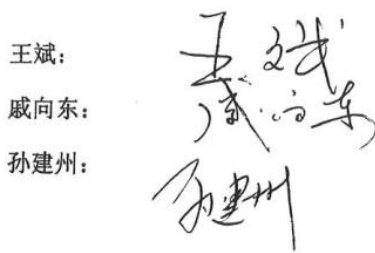 王斌： 王斌
戚向东： 戚向东
孙建州： 孙建州